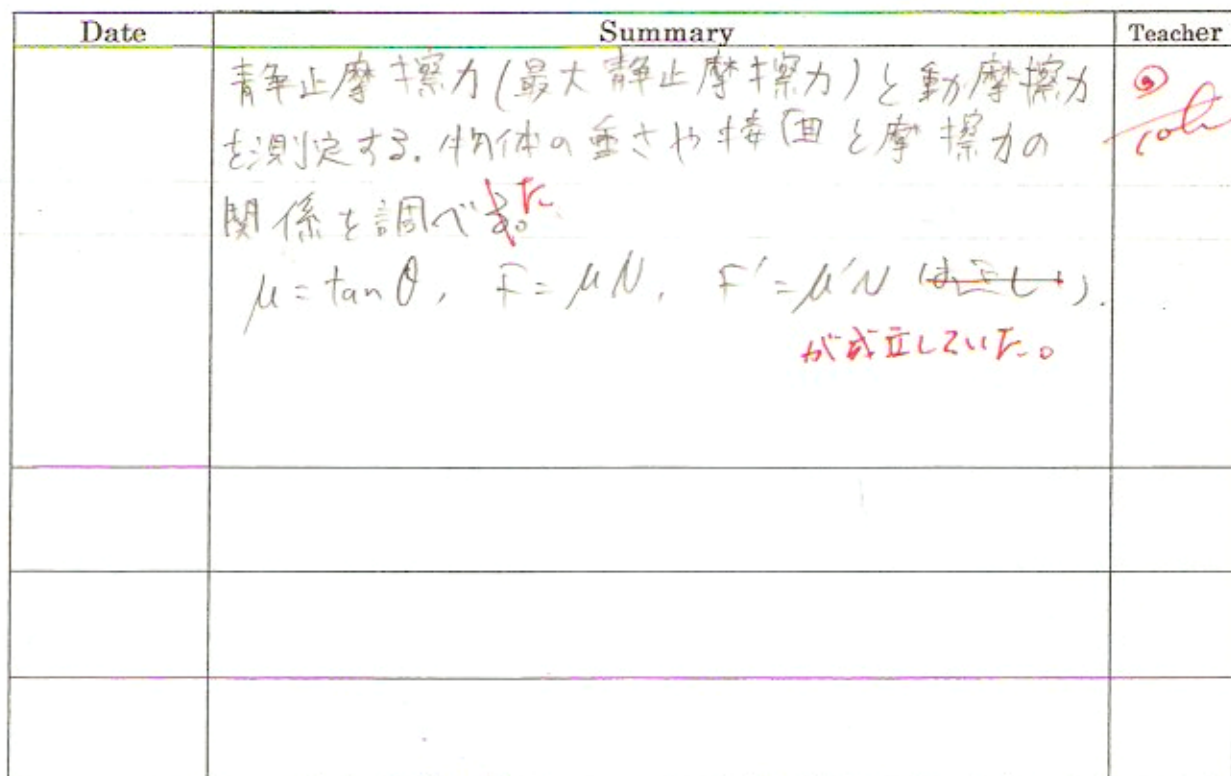 Date Summary Teacher
静止摩擦力(最大静止摩擦力)と動摩擦力
を測定する.物体の重さや接面と摩擦力の
関係を調べる。た
μ=tanθ, F=μN, F'=μ'N
が成立していた。